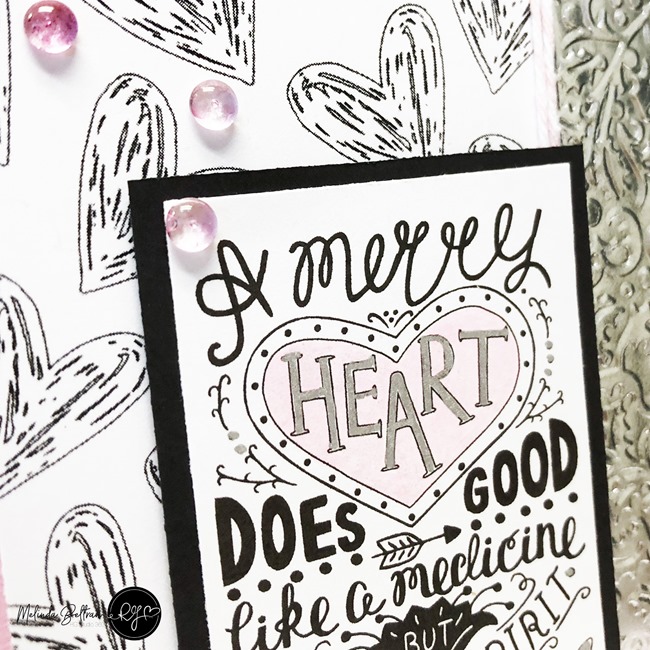 A merry
HEART
DOES GOOD
like a medicine
BUT
SPIRIT
Melinda Beltran